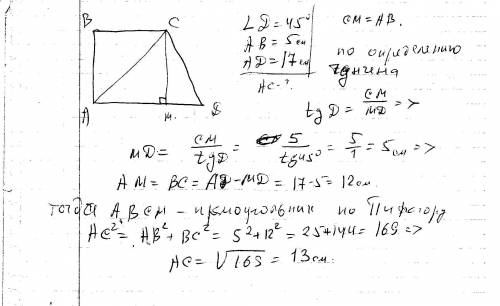 B C
A M. D
∠D = 45°
AB = 5 см
AD = 17 см
AC - ?
CM = AB.
по определению
тангенса
tg D = CM/MD =>
MD = CM/tgD = 5/tg45° = 5/1 = 5 см =>
AM = BC = AD - MD = 17 - 5 = 12 см.
тогда ABCM - прямоугольник по Пифагору
AC² = AB² + BC² = 5² + 12² = 25 + 144 = 169 =>
AC = √169 = 13 см.